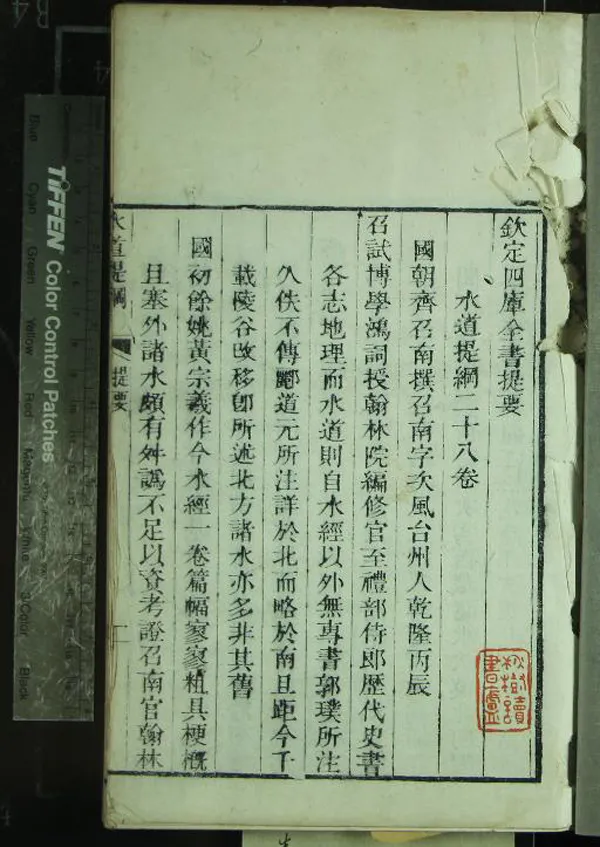 欽定四庫全書提要
水道提綱二十八卷
國朝齊召南撰召南字次風台州人乾隆丙辰
召試博學鴻詞授翰林院編修官至禮部侍郎歷代史書
各志地理而水道則自水經以外無專書郭璞所注
久佚不傳酈道元所注詳於北而略於南且距今千
載陵谷改移卽所述北方諸水亦多非其舊
國初餘姚黃宗羲作今水經一卷篇幅寥寥粗具梗概
且塞外諸水頗有舛譌不足以資考證召南官翰林
水道提綱 提要 一
秋樹讀書廬
TIFFEN Color Control Patches
Blue Cyan Green Yellow Red Magenta White 3/Color Black